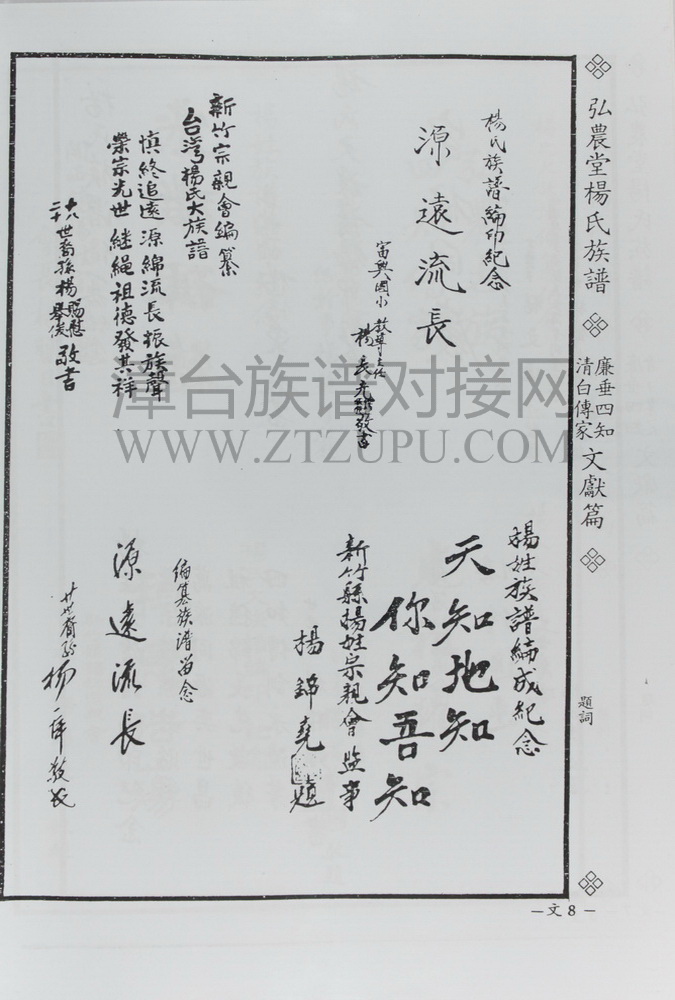 弘農堂楊氏族譜
廉垂四知
清白傳家
文獻篇
題詞
楊氏族譜編印紀念
源遠流長
富興國小 教導主任
楊
敬書
新竹宗親會編纂
台湾楊氏大族譜
慎終追遠源綿流長振族聲
榮宗光世継繩祖德發其祥
世裔孫楊
敬書
楊姓族譜編成紀念
天知地知
你知吾知
新竹縣楊姓宗親會監事
楊錦堯
題
編篡族譜留念
源遠流長
廿世裔孫
楊
敬
漳台族谱对接网
WWW.ZTZUPU.COM
－文 8－